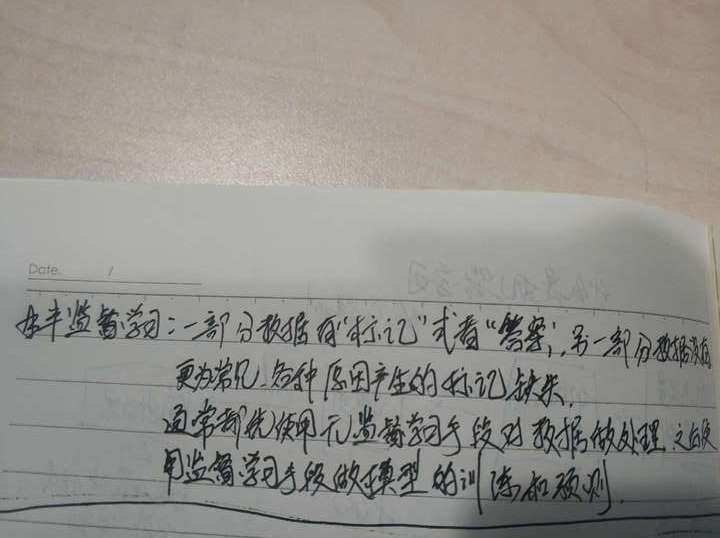 Date. /
半监督学习:一部分数据有“标记”或者“答案”,另一部分数据没有
更为常见、各种原因产生的标记缺失,
通常都先使用无监督学习手段对数据做处理,之后使
用监督学习手段做模型的训练和预测.